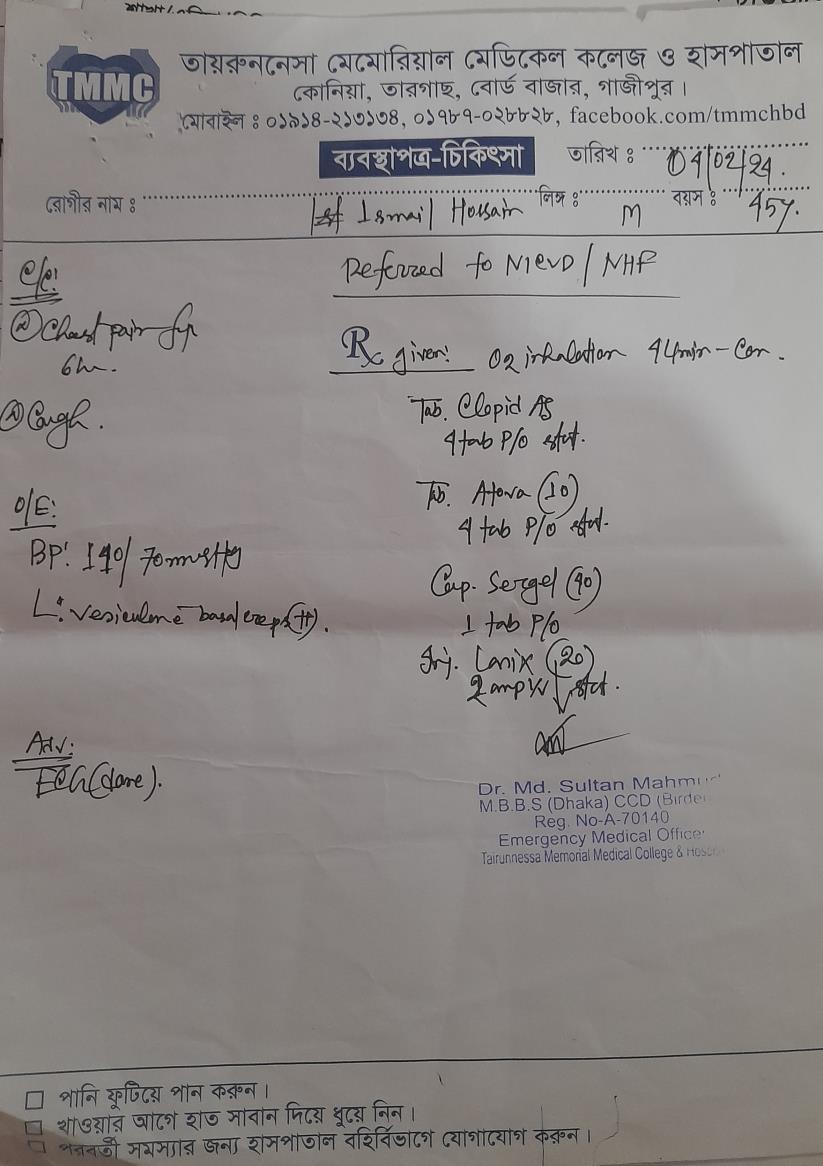 TMMC
তায়রুননেসা মেমোরিয়াল মেডিকেল কলেজ ও হাসপাতাল
কোনিয়া, তারগাছ, বোর্ড বাজার, গাজীপুর।
মোবাইল : ০১৯১৪-২১৩১৩৪, ০১৭৮৭-০২৮৮২৮, facebook.com/tmmchbd
ব্যবস্থাপত্র-চিকিৎসা
তারিখ : 04/02/24.
রোগীর নাম : Ismail Hossain লিঙ্গ : M বয়স : 45y.
Referred to NICVD / NHF
C/C:
Chest pain for
6hr.
Cough.
O/E:
BP: 140/70mmHg
L: vesicular basal creps(++).
Adv:
ECG(done).
Rx given: O2 inhalation 4L/min -
Tab. Clopid AS
4 tab P/O stat.
Tab. Atova (10)
4 tab P/O stat.
Cap. Sergel (40)
1 tab P/O
Inj. Lasix (20)
2 amp IV stat.
Dr. Md. Sultan Mahmu
M.B.B.S (Dhaka) CCD (Birde
Reg. No-A-70140
Emergency Medical Officer
Tairunnessa Memorial Medical College & Hosp
পানি ফুটিয়ে পান করুন।
খাওয়ার আগে হাত সাবান দিয়ে ধুয়ে নিন।
পরবর্তী সমস্যার জন্য হাসপাতাল বহির্বিভাগে যোগাযোগ করুন।